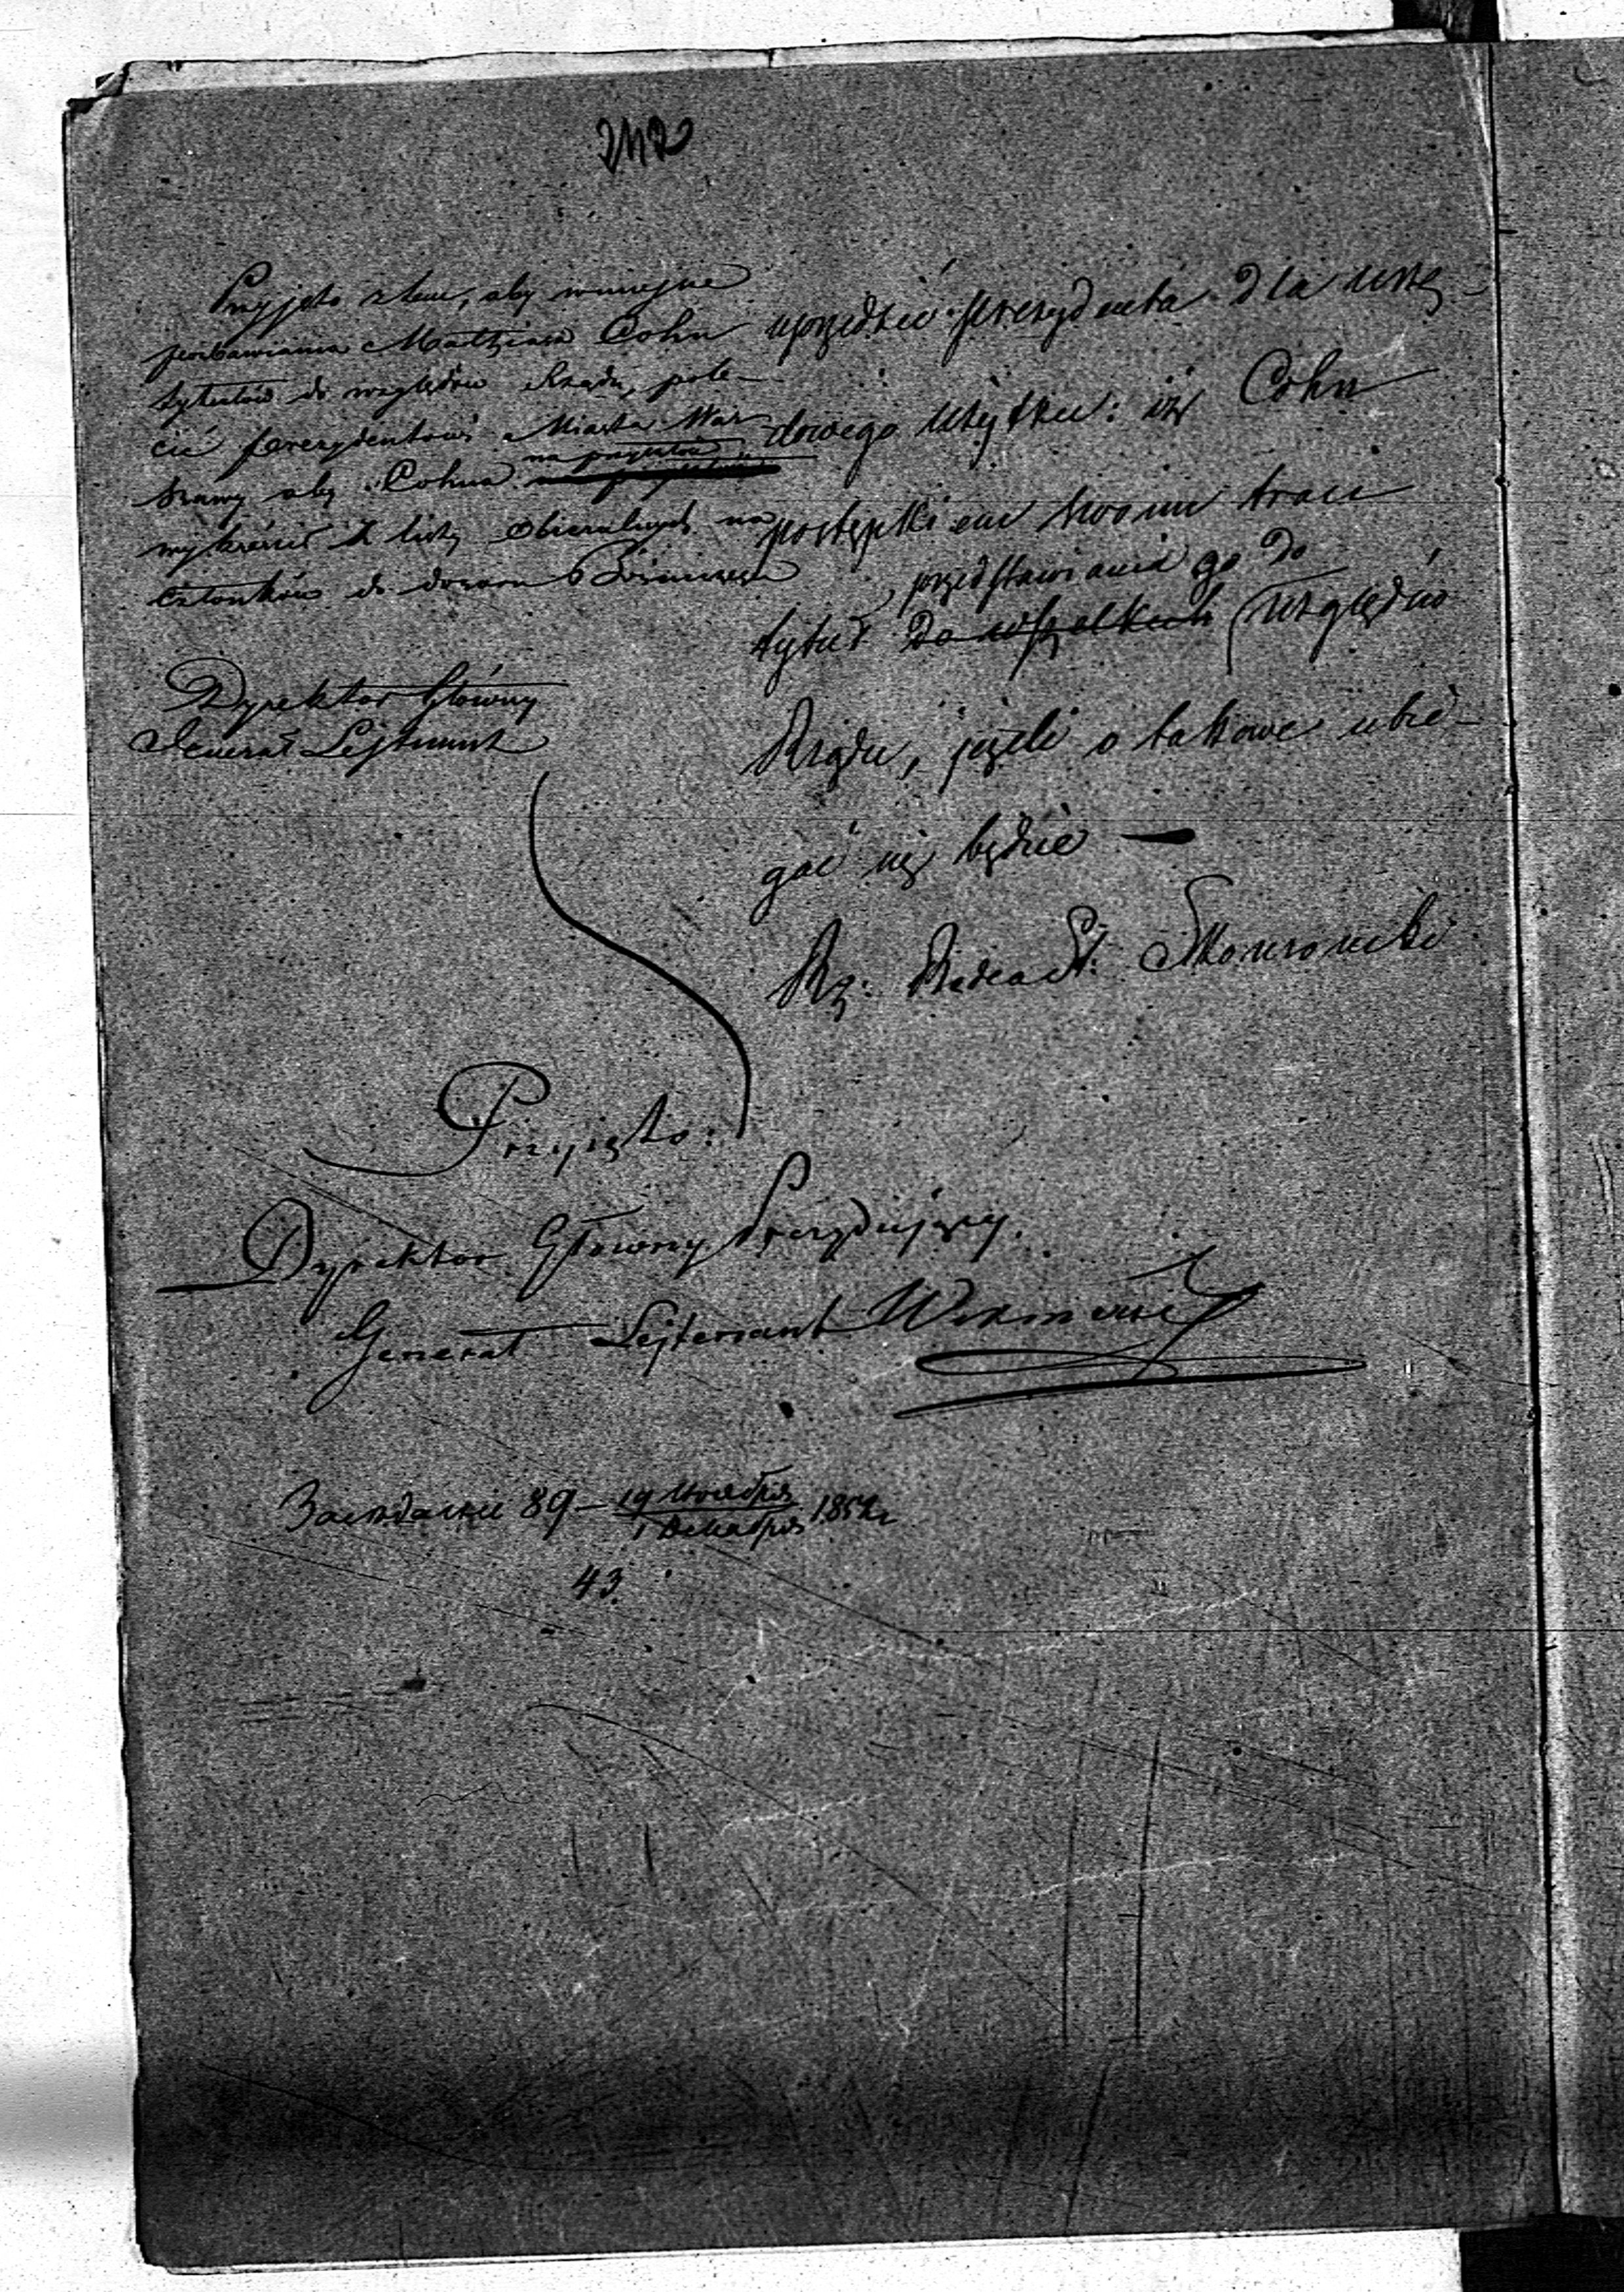 242
Przyjęto z tem, aby w miejsce
pozbawiania Mathiasa Cohn
tytułów do względów Rządu, pole-
cić prezydentowi Miasta War-
szawy aby Cohna na przyszłość
wykreślił z listy obieralnych na
członków do dozoru Bóżniczego
Dyrektor Główny
Generał Lejtnant
uprzedzić prezydenta dla urzę-
dowego użytku: iż Cohn
postępkiem swoim traci
przedstawiania go do
tytuł do wszelkich względów
Rządu, jeżeli o takowe ubie-
gać się będzie —
Rz: Radca St:
Przyjęto:
Dyrektor Główny Prezydujący.
Generał Lejtenant Wikiński
Заседание 89 — 19 Ноября / 1 Декабря 1852 г
43.